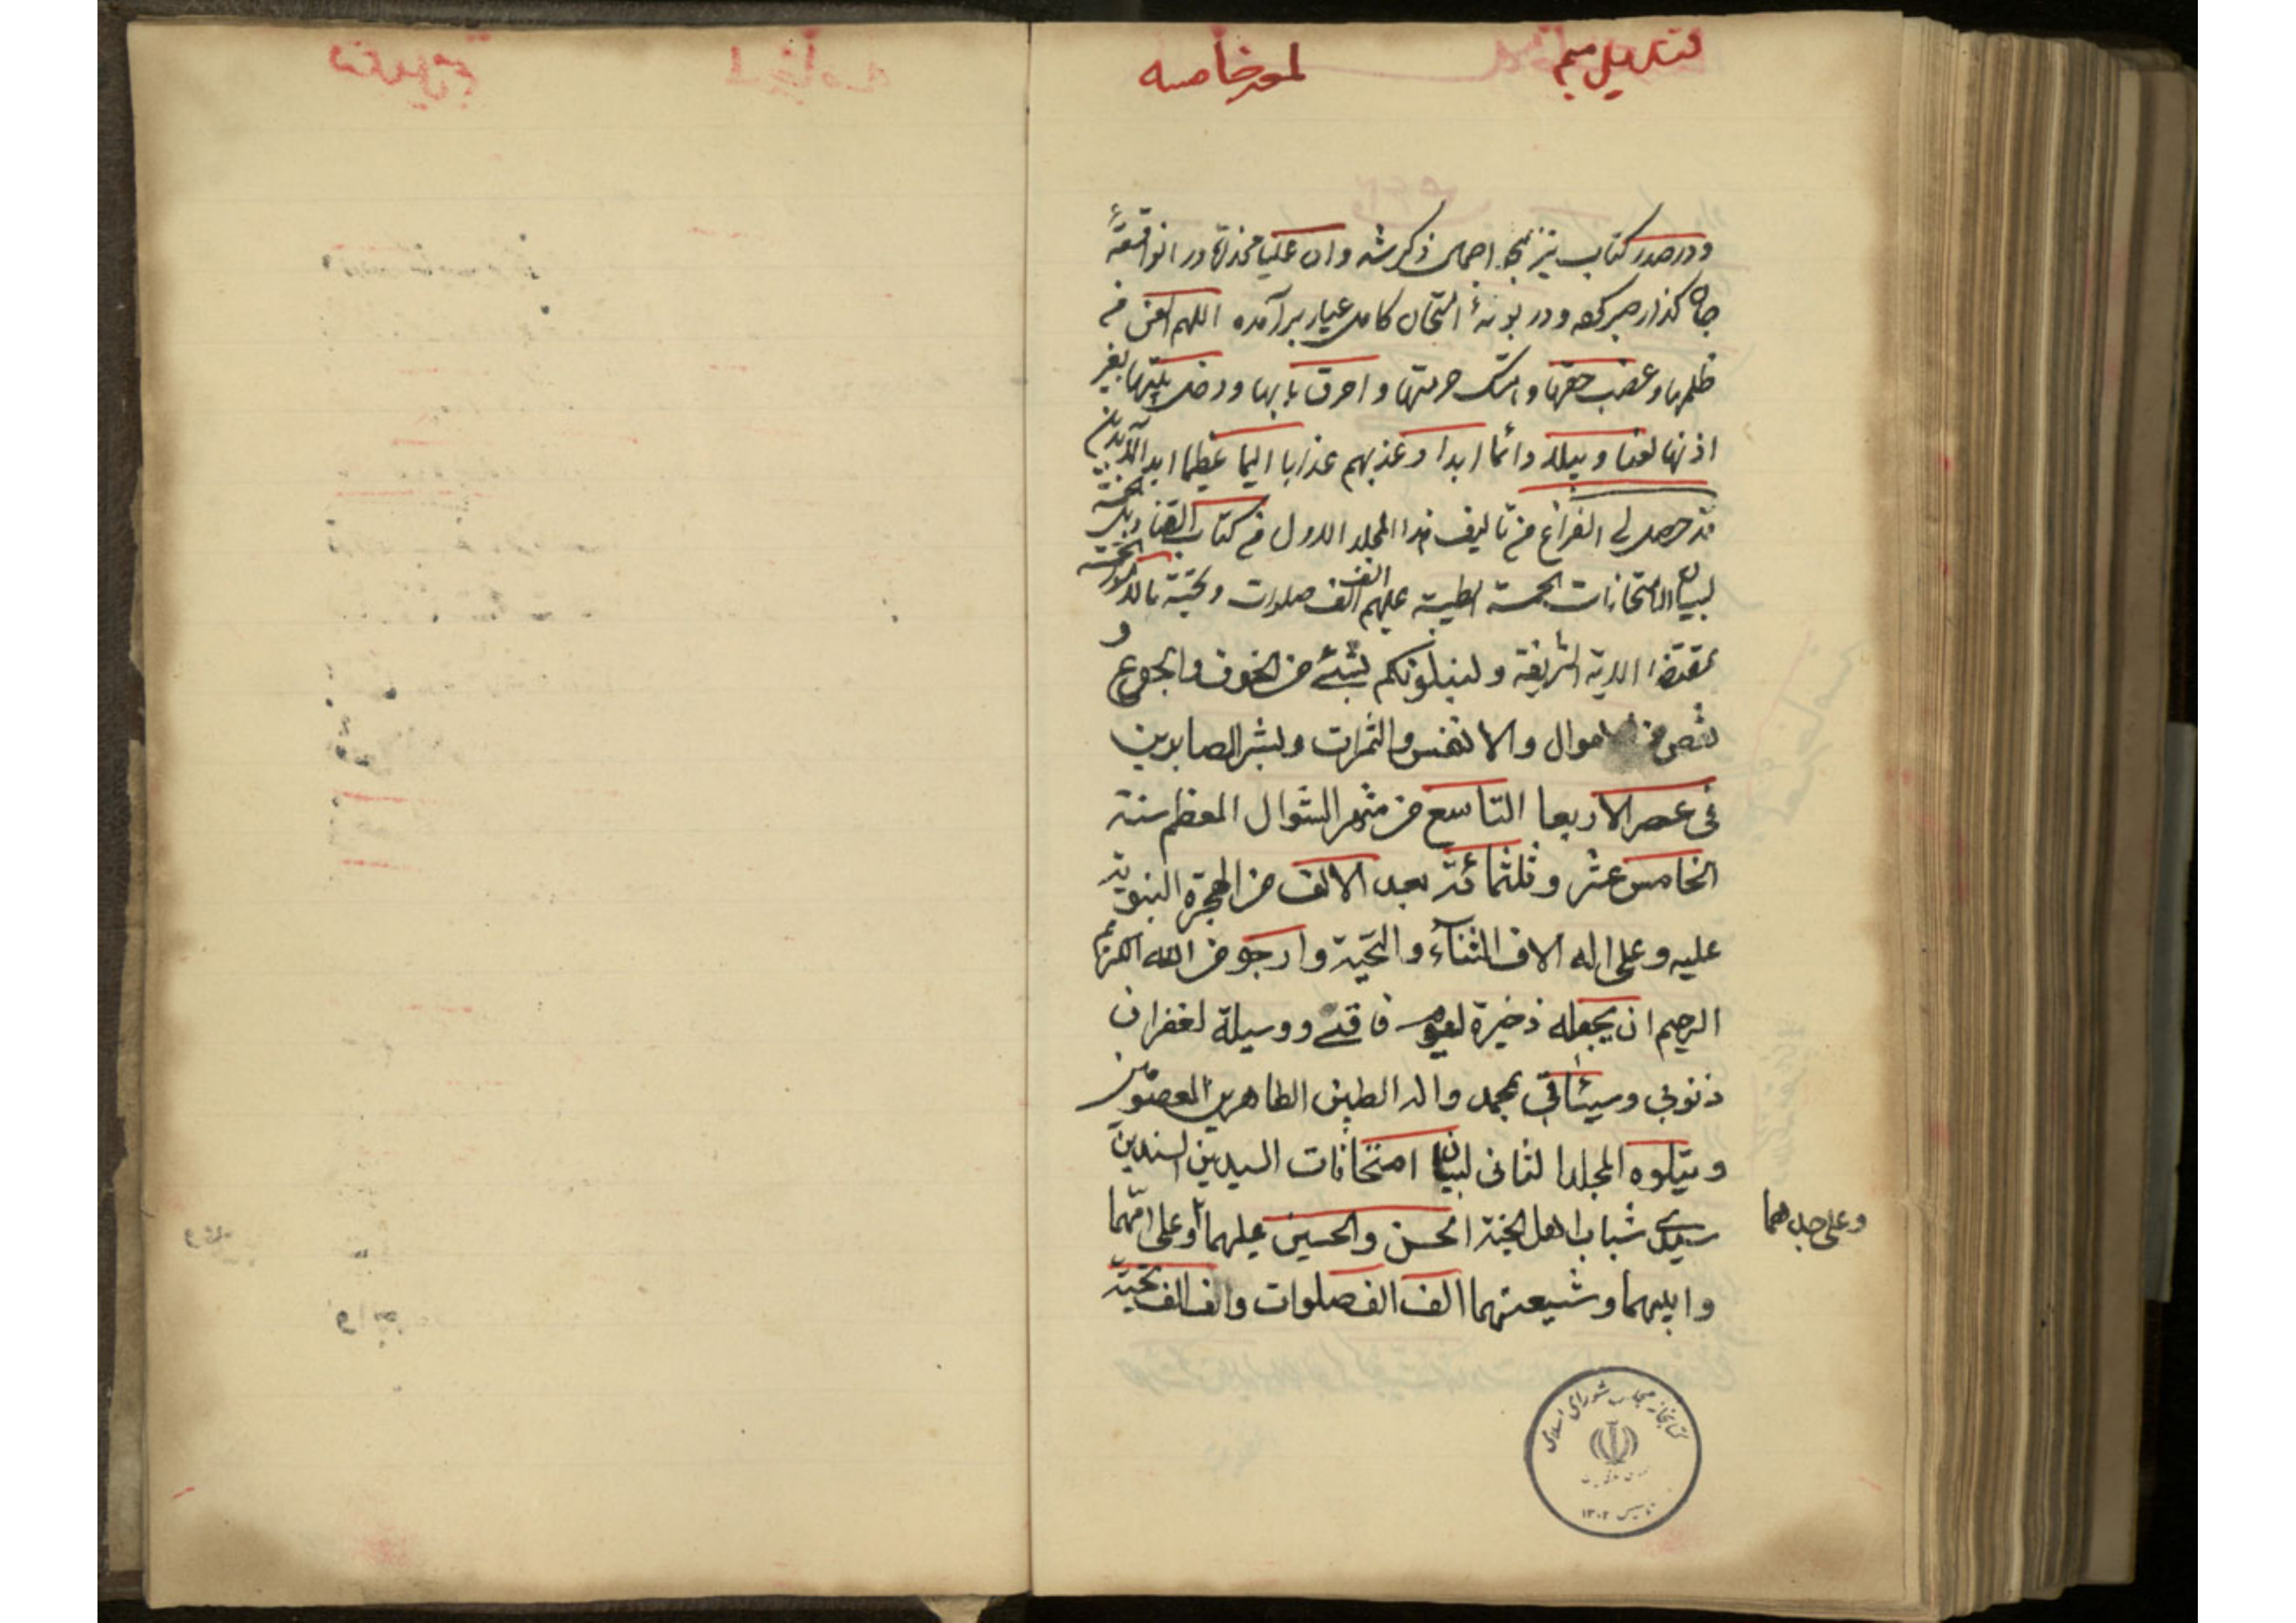 قندیل پنجم امور خاصه
و در صدر کتاب نیز اجمالی ذکر شد و ان علیا مخدره در انواقعهٔ
جان گذار صبر کرده و در بوتهٔ امتحان کامل عیار برآمده اللهم العن من
ظلمها و غصب حقها و هتک حرمتها و احرق بابها و دخل بیتها بغیر
اذنها لعنا وبیلا دائما ابدا و عذبهم عذابا الیما عظیما ابد الآبدین
قد حصل لی الفراغ من تالیف هذا المجلد الاول من کتاب
لبیان الامتحانات الخمسة الطیبة علیهم الف الف صلوات و تحیة
بمقتضا الایة الشریفة ولنبلونکم بشئ من الخوف والجوع و
نقص من الاموال والانفس والثمرات وبشر الصابرین
فی عصر الاربعا التاسع من شهر الشوال المعظم سنة
الخامس عشر و ثلثمائة بعد الالف من الهجرة النبویة
علیه و علی اله الاف الثناء والتحیة وارجو من الله الکریم
الرحیم ان یجعله ذخیرة لیوم فاقتی و وسیلة لغفران
ذنوبی وسیئاتی بمحمد واله الطیبین الطاهرین المعصومین
و یتلوه المجلد الثانی لبیان امتحانات السیدین السندین
سیدی شباب اهل الجنة الحسن والحسین علیهما و علی امهما
و علی جدهما
و ابیهما و شیعتهما الف الف صلوات والف الف تحیة
کتابخانه مجلس شورای اسلامی
تاسیس ۱۳۰۲